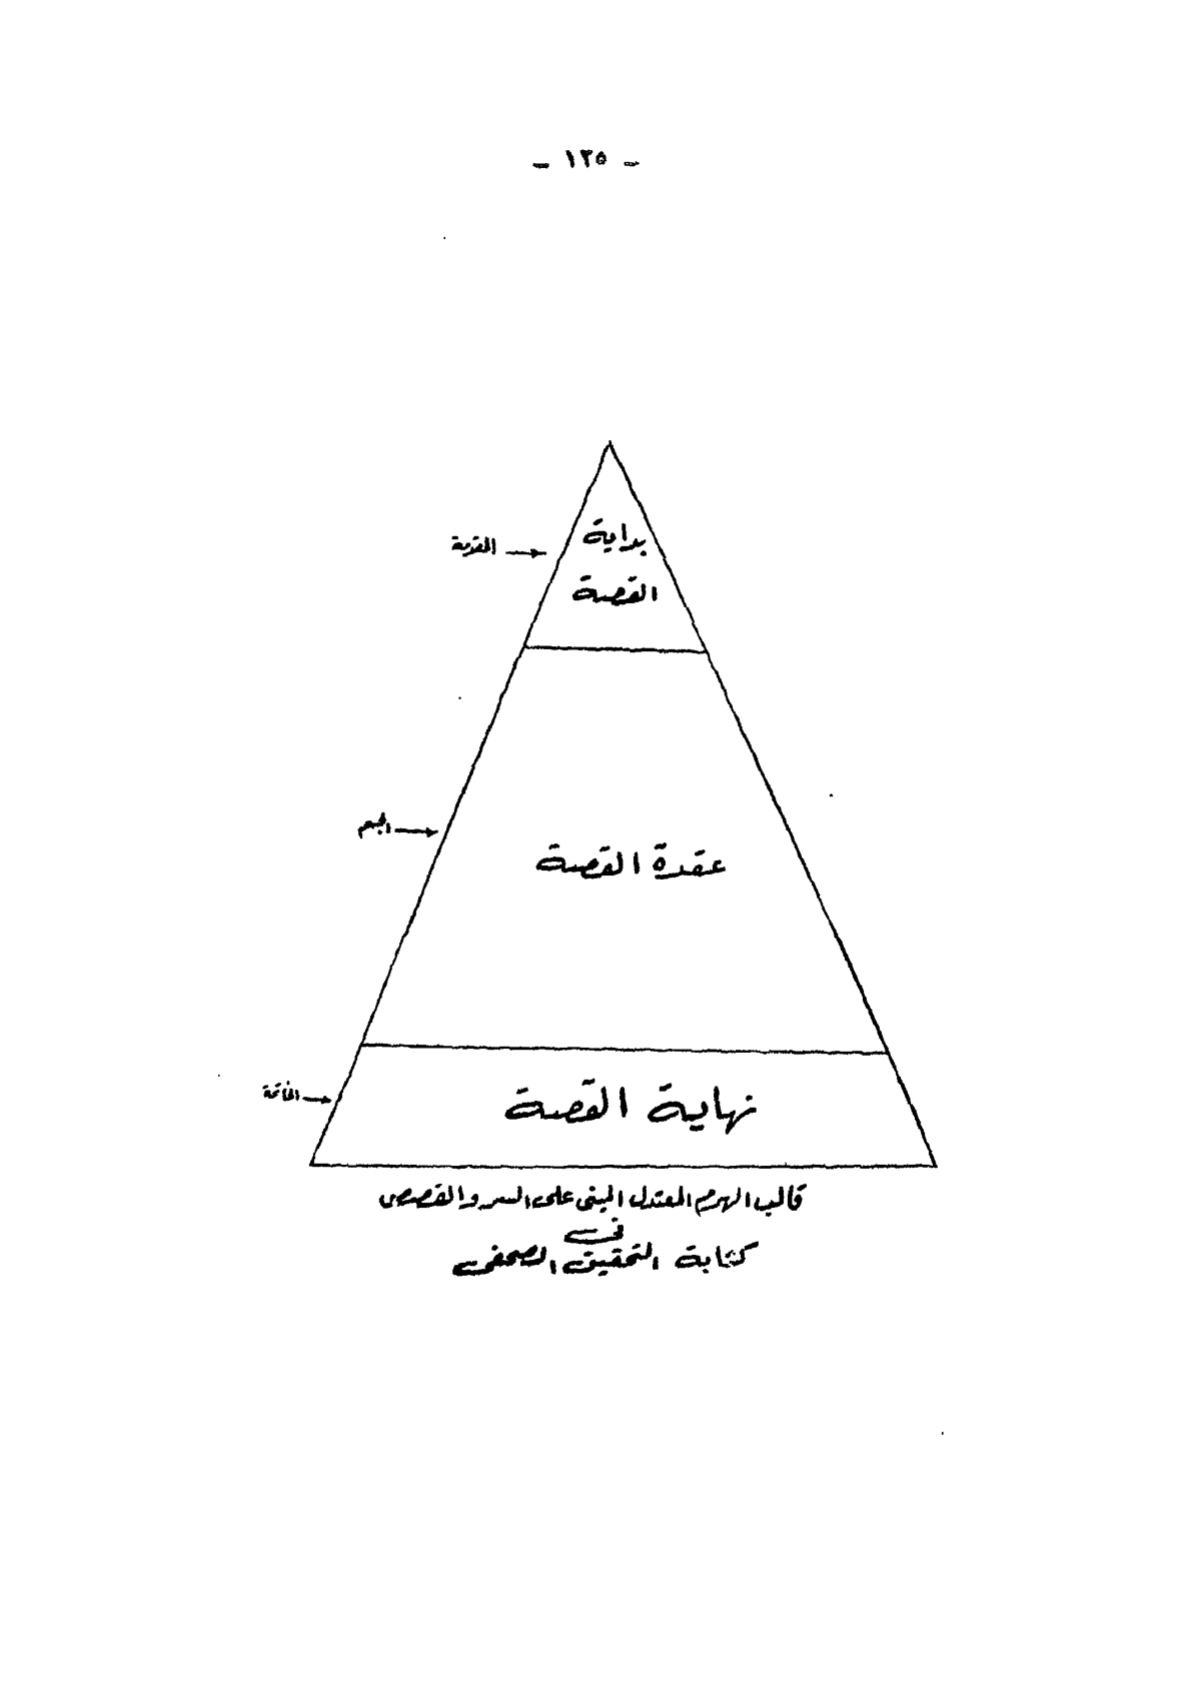 - ١٢٥ -
بداية
القصة
المقدمة
الجسم
عقدة القصة
الخاتمة
نهاية القصة
قالب الهرم المعتدل المبنى على السرد والقصص
فى
كتابة التحقيق الصحفى